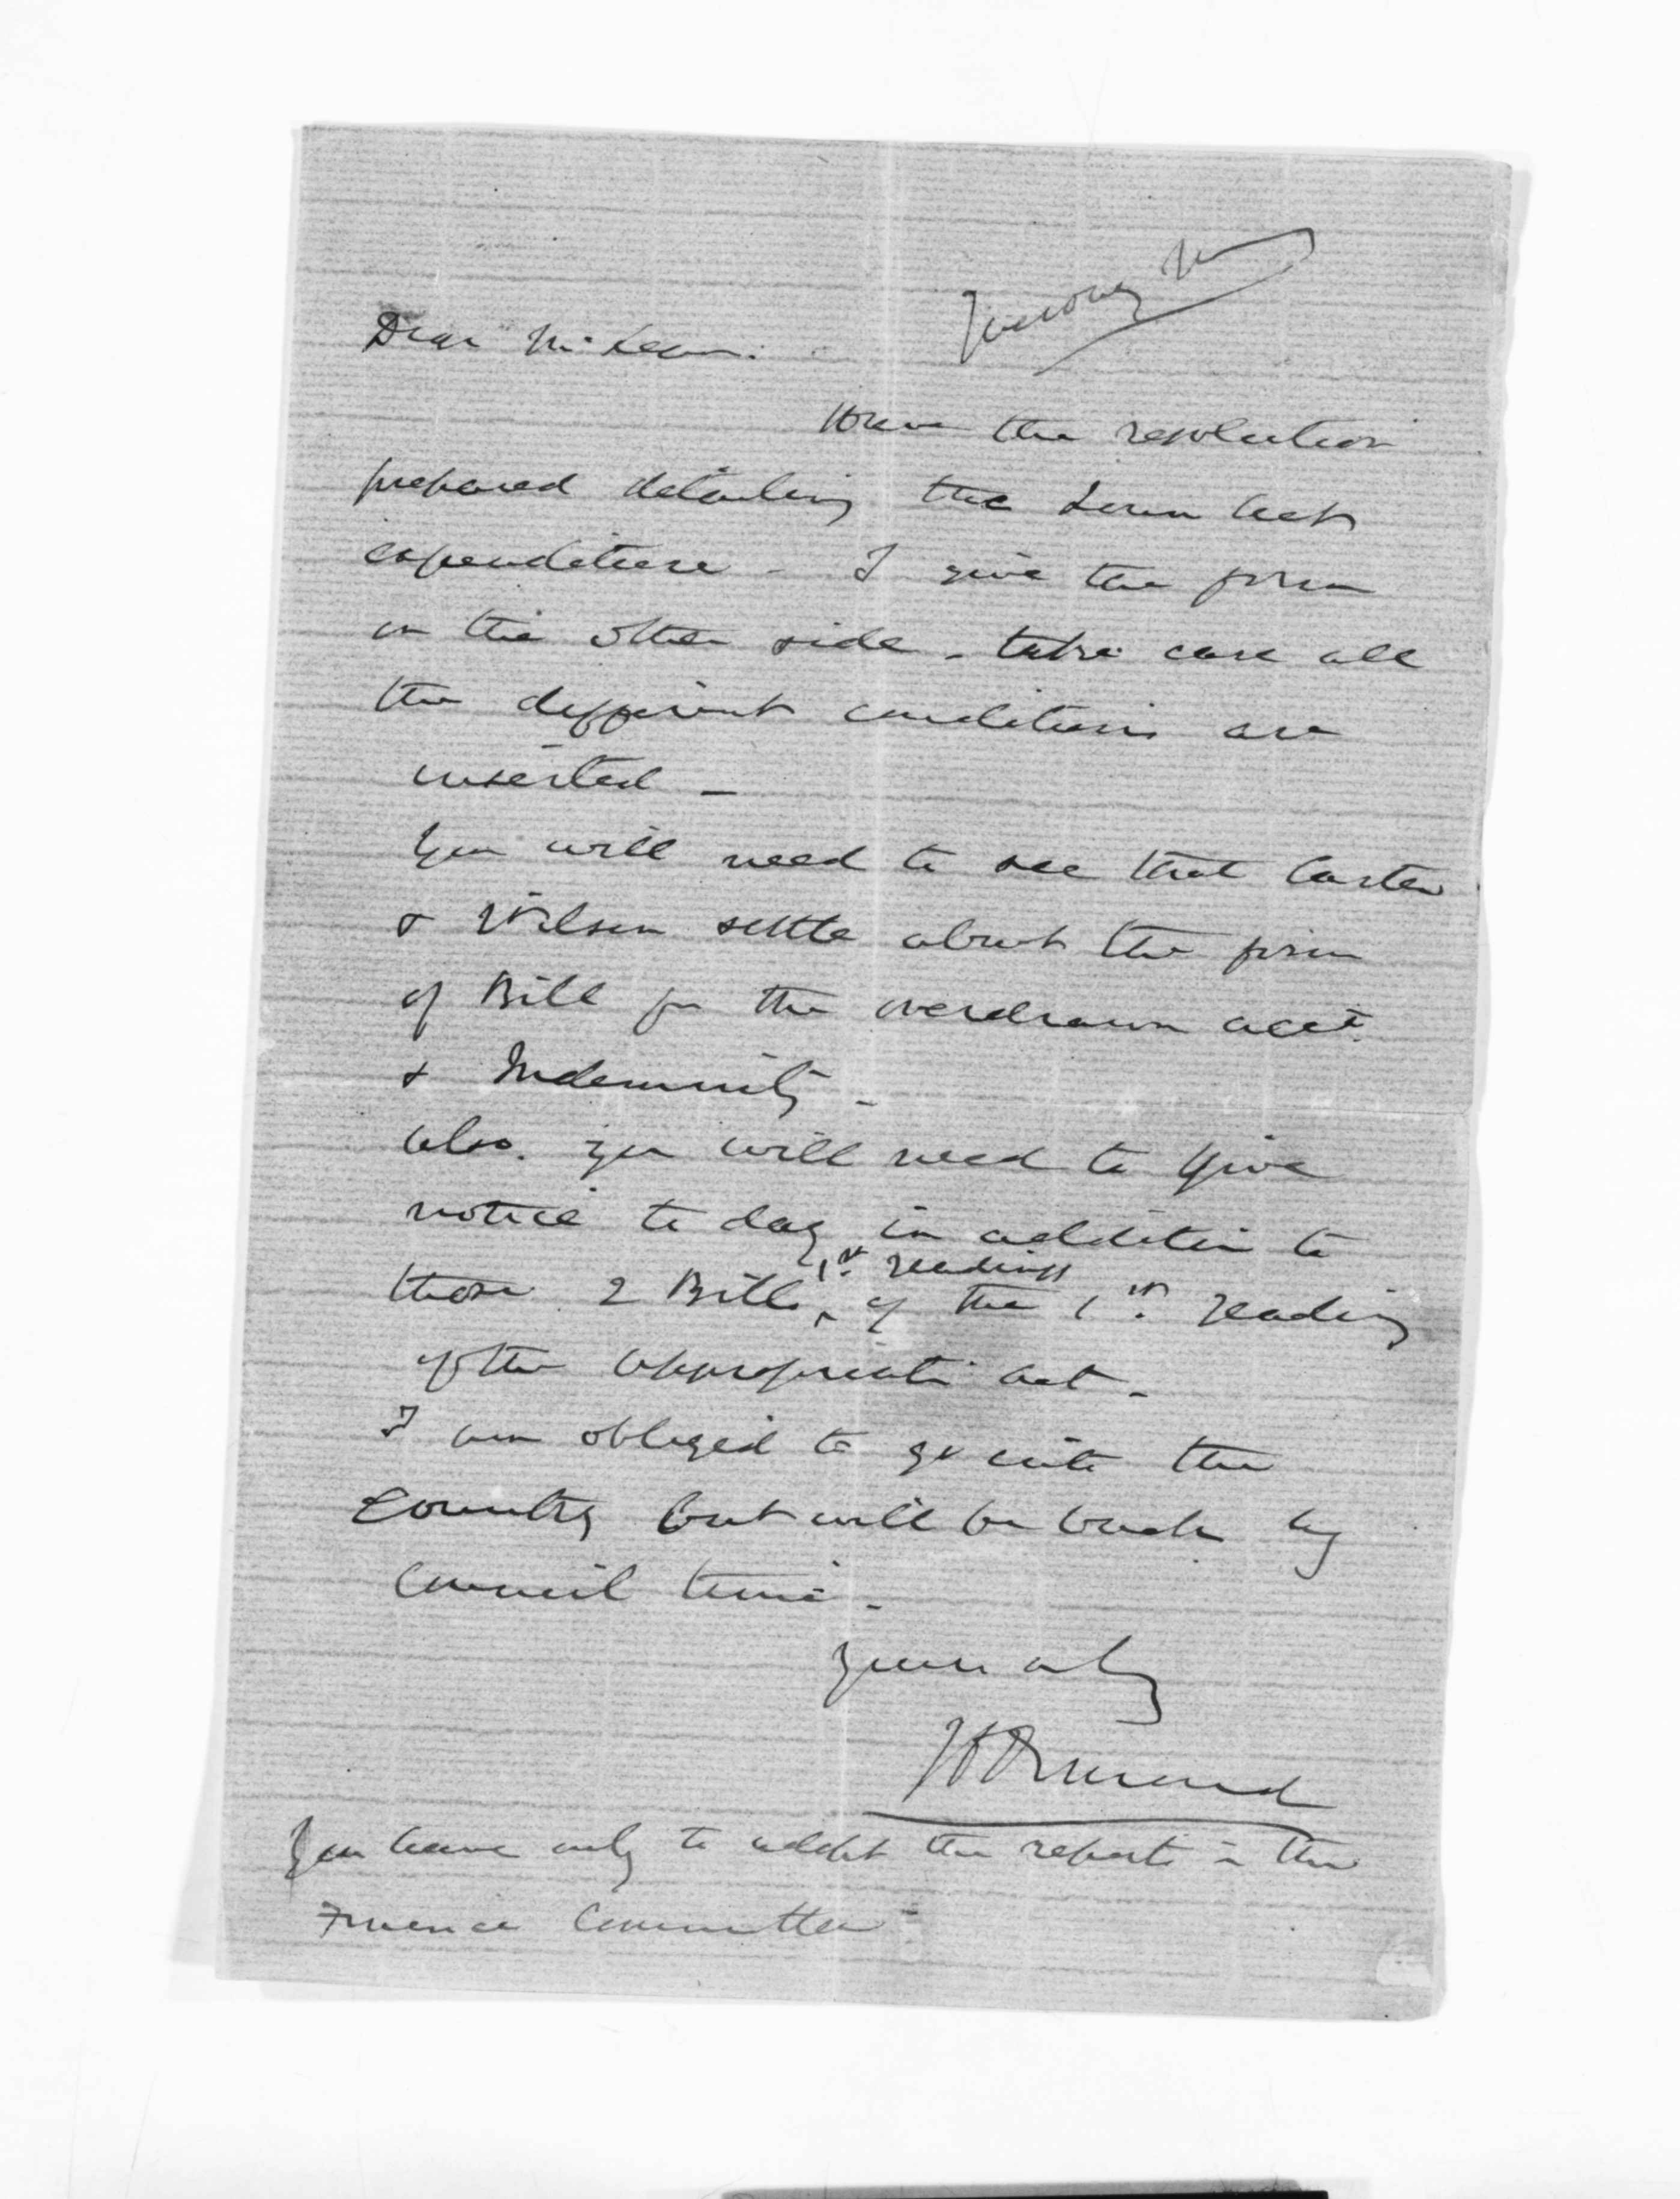 Tuesday
Dear McLean.
Have the resolution
prepared detailing the Loan Act
expenditure - I give the form
on the other side - take care all
the different conditions are
inserted -
You will need to see that Carter
& Wilson settle about the form
of Bill for the overdrawn acct.
& Indemnity -
Also. you will need to give
notice to day in addition to
1st. readings
those 2 Bills, of the 1st. reading
of the appropriati Act -
I am obliged to go into the
Country but will be back by
Council time -
Yours only
JD Ormond
You have only to adopt the reports in the
Finance Committee